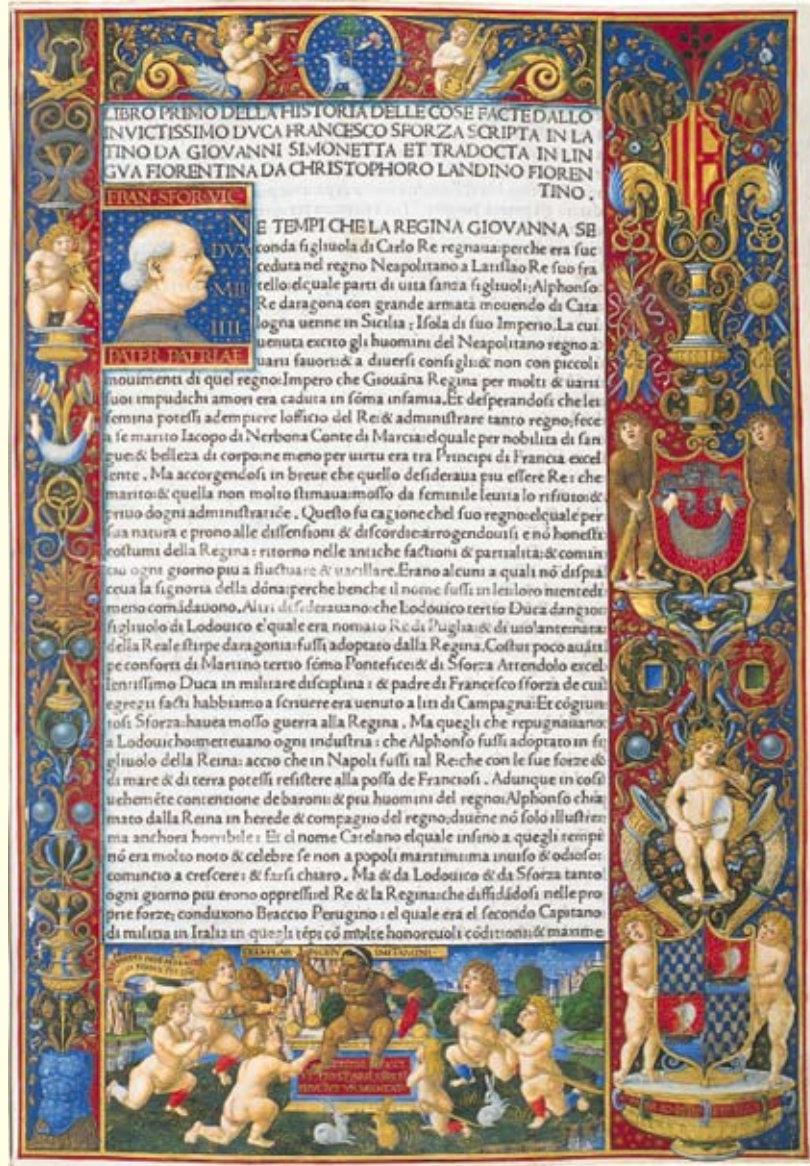 LIBRO PRIMO DELLA HISTORIA DELLE COSE FACTE DALLO
INVICTISSIMO DVCA FRANCESCO SFORZA SCRIPTA IN LA
TINO DA GIOVANNI SIMONETTA ET TRADOCTA IN LIN
GVA FIORENTINA DA CHRISTOPHORO LANDINO FIOREN
TINO .
FRAN·SFOR·VIC
DVX
MLI
IIII
PATER PATRIAE
NE TEMPI CHE LA REGINA GIOVANNA SE
conda figliuola di Carlo Re regnaua: perche era suc
ceduta nel regno Neapolitano a Latislao Re suo fra
tello: elquale parti di uita sanza figliuoli: Alphonso
Re daragona con grande armata mouendo di Cata
logna uenne in Sicilia: Isola di suo Imperio. La cui
uenuta excito gli huomini del Neapolitano regno a
uarii fauori: & a diuersi consigli: & non con piccoli
mouimenti di quel regno: Impero che Giouãna Regina per molti & uarii
suoi impudichi amori era caduta in sõma infamia. Et desperandosi che lei
femina potessi adempiere lofficio del Re: & administrare tanto regno: fece
a se marito Iacopo di Nerbona Conte di Marcia: elquale per nobilita di san
gue: & belleza di corpo: ne meno per uirtu era tra Principi di Francia excel
lente. Ma accorgendosi in breue che quello desideraua piu essere Re: che
marito: & quella non molto stimaua: mosso da feminile leuita lo rifiuto: &
priuo dogni administratiõe. Questo fu cagione chel suo regno: elquale per
sua natura e prono alle dissensioni & discordie: arrogendouisi e nõ honesti
costumi della Regina: ritorno nelle antiche factioni & partialita: & comin
cio ogni giorno piu a fluctuare & uacillare. Erano alcuni a quali nõ dispia
ceua la signoria della dõna: perche benche il nome fussi in lei: loro nientedi
meno comãdauono. Altri desiderauano: che Lodouico tertio Duca dangio:
figliuolo di Lodouico e'quale era nomato Re di Puglia: & di
della Reale stirpe daragonia: fussi adoptato dalla Regina. Costui poco auãti
pe conforti di Martino tertio sõmo Pontefice: & di Sforza Attendolo excel
lentissimo Duca in militare disciplina: & padre di Francesco sforza de cui
egregii facti habbiamo a scriuere era uenuto a liti di Campagna: Et cõgiun
tosi Sforza: hauea mosso guerra alla Regina. Ma quegli che repugnauano
a Lodouicho: metteuano ogni industria: che Alphonso fussi adoptato in fi
gliuolo della Reina: accio che in Napoli fussi tal Re: che con le sue forze &
di mare & di terra potessi resistere alla possa de Franciosi. Adunque in cosi
uehemẽte contentione de baroni: & piu huomini del regno: Alphonso chia
mato dalla Reina in herede & compagno del regno: diuẽne nõ solo illustre:
ma anchora horribile: Et el nome Catelano elquale insino a quegli tempi
nõ era molto noto & celebre se non a popoli maritimi: ma inuiso & odioso:
comincio a crescere: & farsi chiaro. Ma & da Lodouico & da Sforza tanto
ogni giorno piu erono oppressi: el Re & la Regina: che diffidãdosi nelle pro
prie forze: conduxono Braccio Perugino: el quale era el secondo Capitano
di militia in Italia in quegli tẽpi cõ molte honoreuoli cõditioni: & maxime